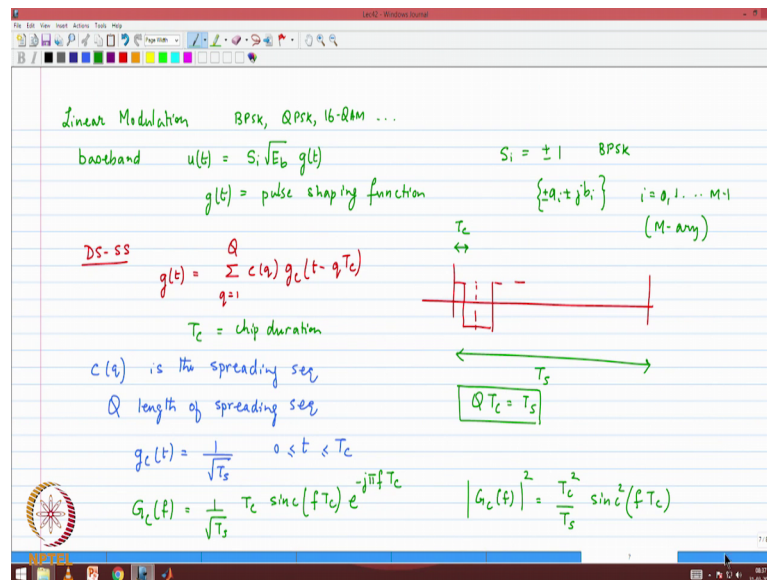 Lec42 - Windows Journal
File Edit View Insert Actions Tools Help
Page Width
B I
Linear Modulation BPSK, QPSK, 16-QAM ...
baseband u(t) = Si √Eb g(t) Si = ± 1 BPSK
g(t) = pulse shaping function {±ai ± jbi} i = 0, 1 .... M-1
(M-ary)
Tc
DS-SS
g(t) = Q Σ q=1 c(q) gc(t - qTc)
Tc = chip duration
Ts
c(q) is the spreading seq
Q length of spreading seq
Q Tc = Ts
gc(t) = 1/√Ts 0 ≤ t ≤ Tc
Gc(f) = 1/√Ts Tc sinc(fTc) e^-jπfTc |Gc(f)|² = Tc²/Ts sinc²(fTc)
NPTEL